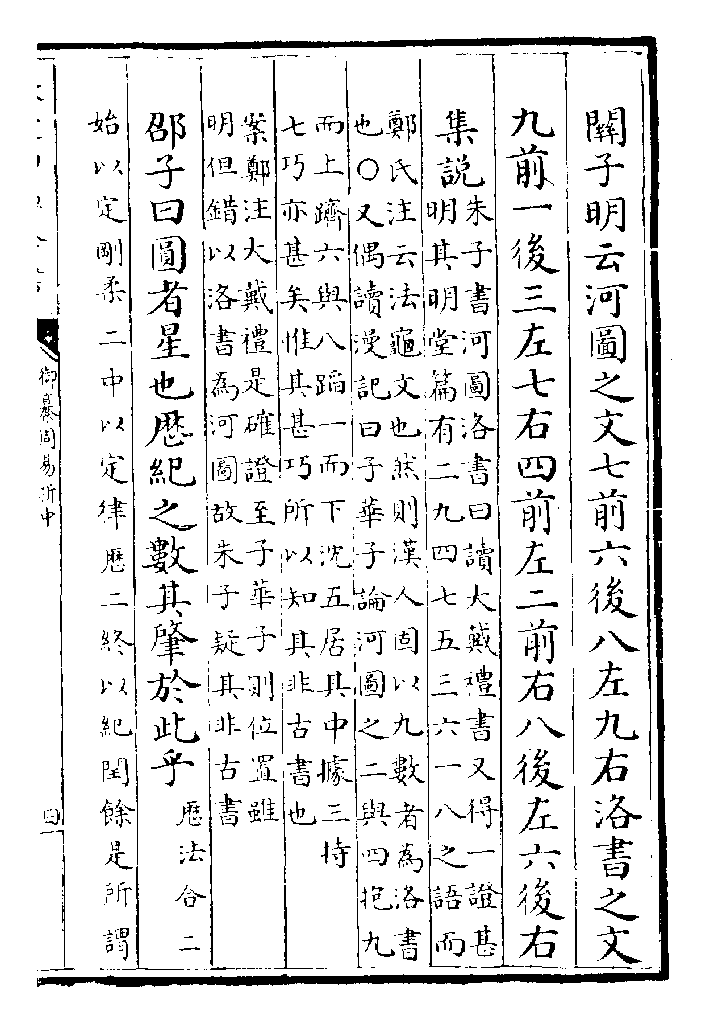 關子明云河圖之文七前六後八左九右洛書之文
九前一後三左七右四前左二前右八後左六後右
集說
朱子書河圖洛書曰讀大戴禮書又得一證甚
明其明堂篇有二九四七五三六一八之語而
鄭氏注云法龜文也然則漢人固以九數者為洛書
也〇又偶讀漫記曰子華子論河圖之二與四抱九
而上躋六與八蹈一而下沈五居其中據三持
七巧亦甚矣惟其甚巧所以知其非古書也
案鄭注大戴禮是確證至子華子則位置雖
明但錯以洛書為河圖故朱子疑其非古書
邵子曰圖者星也厯紀之數其肇於此乎
厯法合二
始以定剛柔二中以定律厯二終以紀閏餘是所謂
御纂周易折中
四